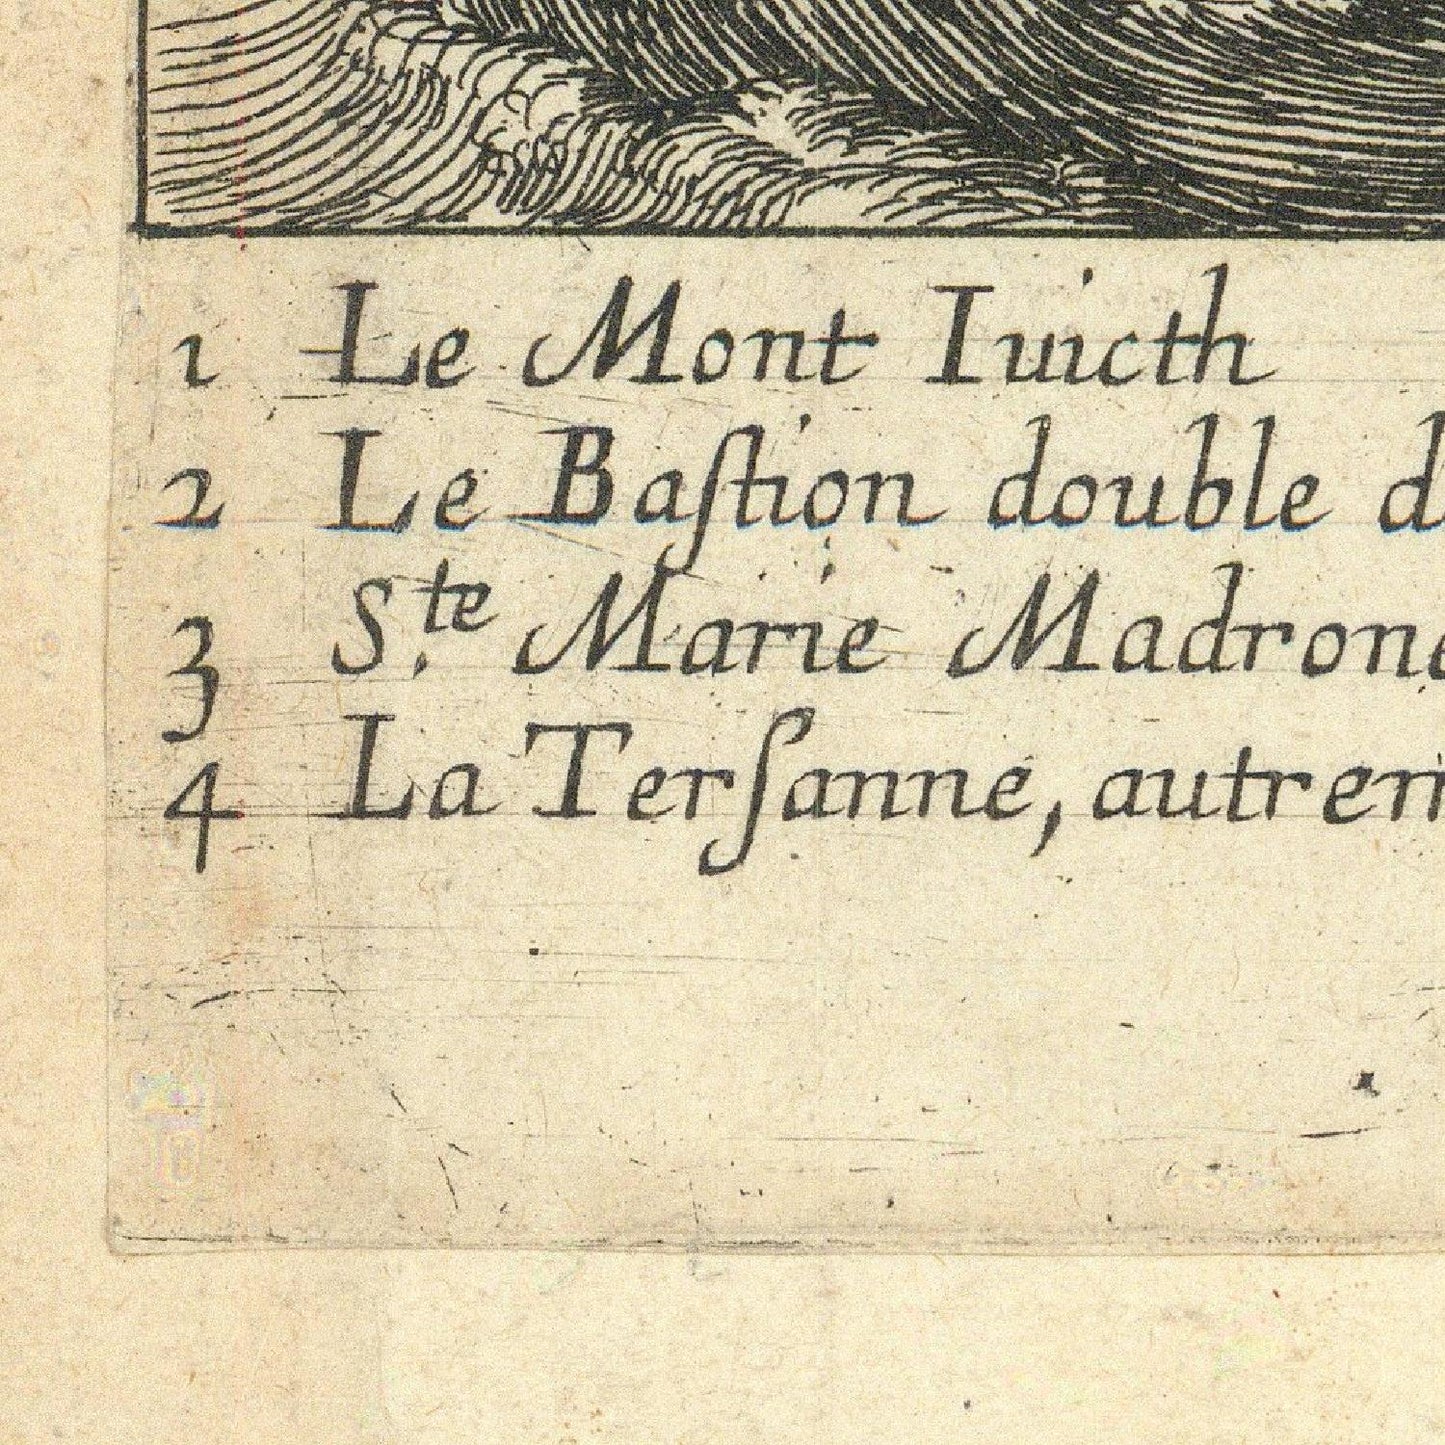 1 Le Mont Iuicth
2 Le Baſtion double d
3 S.te Marie Madrone
4 La Terſanne, autrem